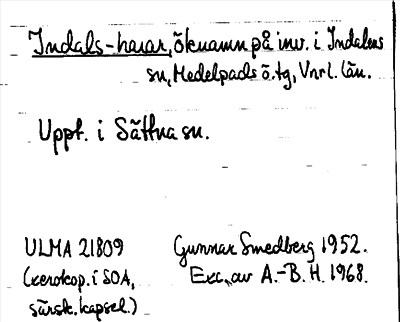 Indals-harar, öknamn på inv. i Indalens
sn, Medelpads ö. tg, Vnrl. län.
Uppt. i Sättna sn.
ULMA 21809 Gunnar Smedberg 1952.
(xerokop. i SOA, Exc. av A.-B. H. 1968.
särsk. kapsel.)